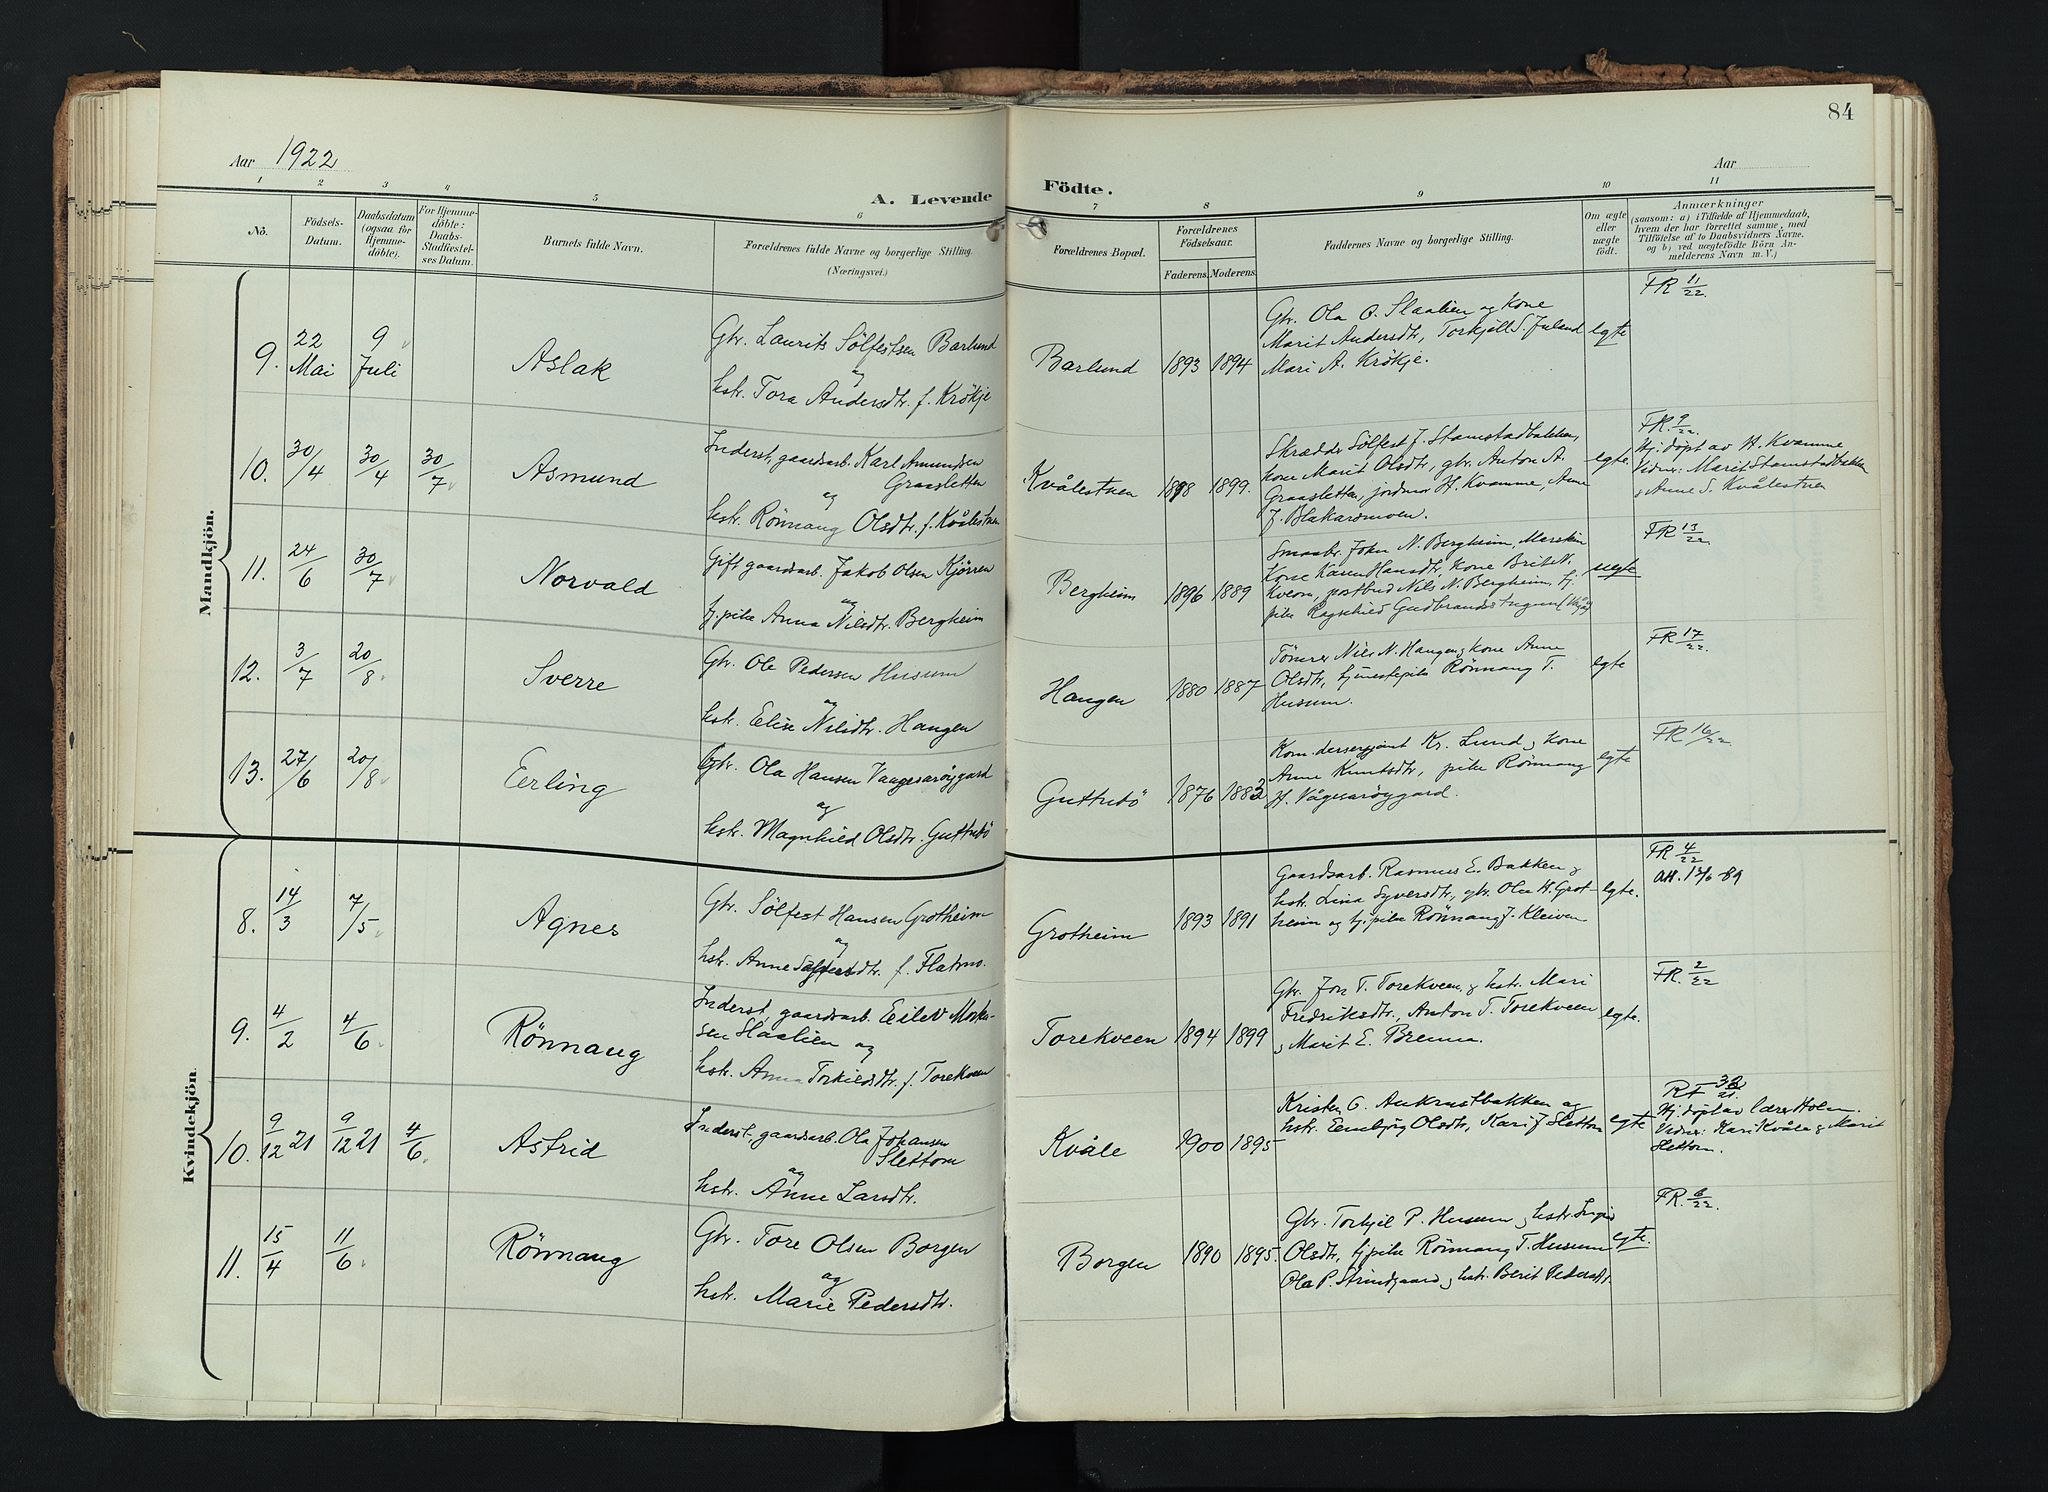 84
Aar 1922
Aar
1 2 3 4 5 6 7 8 9 10 11
A. Levende Födte.
No.
Födsels-Datum.
Daabsdatum (ogsaa for Hjemme-döbte).
For Hjemme-döbte: Daabs-Stadfæstel-ses Datum.
Barnets fulde Navn.
Forældrenes fulde Navne og borgerlige Stilling. (Næringsvei.)
Forældrenes Bopæl.
Forældrenes Födselsaar.
Faderens. Moderens.
Faddernes Navne og borgerlige Stilling.
Om ægte eller uægte födt.
Anmærkninger
(saasom: a) i Tilfælde af Hjemmedaab,
hvem der har forrettet samme, med
Tilföielse af to Daabsvidners Navne.
og b) ved uægtefödte Börn An-
melderens Navn m. V.)
Mandkjön.
9. 22 Mai 9 Juli Aslak
Gbr. Laurits Sölfestsen Barlund
og
hstr. Tora Andersdtr. f. Krökje
Barlund 1893 1894
Gbr. Ola O. Slaalien og kone
Marit Andersdtr, Torkjell S. Juland
Mari A. Krökje.
egte
FR 11/22.
10. 30/4 30/4 30/7 Asmund
Inderst, gaardsarb. Karl Amundsen
Graasletten
og
hstr. Rönnaug Olsdtr. f. Kvålestuen
Kvålestuen 1898 1899.
Skrædder Sölfest J. Stamstadbakken,
kone Marit Olsdtr, gbr. Anton A.
Graasletten, jordmor H. Kvamme, Anne
J. Blakarmoen.
egte.
FR. 9/22.
Hj. döpt av H. Kvamme
Vidner: Marit Stamstadbakken
& Anne S. Kvålestuen
11. 24/6 30/7 Norvald
Gift gaardsarb. Jakob Olsen Kjörren
og
tj. pike Anna Nilsdtr. Bergheim
Bergheim 1896 1889
Smaabr. John N. Bergheim,
Kone Karen Hansdtr, kone Brit N.
Kveom, postbud Nils N. Bergheim, tj.
pike Ragnhild Gudbrandsstugun (Vågå)
uegte
FR 13/22
12. 3/7 20/8. Sverre
Gbr. Ole Pedersen Husum
og
hstr. Elise Nilsdtr. Haugen
Haugen 1880 1887
Tömrer Nils N. Haugen & kone Anne
Olsdtr, tjenestepike Rönnaug T.
Husum.
egte
FR 17/22.
13. 27/6 20/8 Erling
Gbr. Ola Hansen Vaagesaröygard
og
hstr. Magnhild Olsdtr. Guttubö
Guttubö 1876 1883
Kr. Lund & kone
Anne Knutsdtr, pike Rönnaug
H. Vågesaröygard.
egte
FR 16/22.
Kvindekjön
8. 14/3 7/5 Agnes
Gbr. Sölfest Hansen Grotheim
og
hstr. Anne f. Flatmo.
Grotheim 1893 1891
Gaardsarb. Rasmus E. Bakken &
hstr. Lina Syversdtr, gbr. Ola H. Grot-
heim og tj. pike Rönnaug J. Kleiven
egte.
FR 4/22
Att. 12/6-89
9. 4/2 4/6 Rönnaug
Inderst, gaardsarb. Eilev
sen Slaalien og
hstr. Anna Torkildsdtr. f. Torekveen
Torekveen 1894 1899
Gbr. Jon T. Torekveen & hstr. Mari
Fredriksdtr., Anton T. Torekveen
& Marit E. Brenna.
egte.
FR. 2/22
10. 9/12 21 9/12 21 4/6 Astrid
Inderst, gaardsarb. Ola Johansen
Slettom
og
hstr. Anne Larsdtr.
Kvåle 1900 1895
Kristen O. Aukrustbakken og
hstr. Olsdtr, Kari J Slettom
egte
RF 21.
Hj. döpt av lærer Holm.
Vidner: Kari Kvåle & Marit
Slettom.
11. 15/4 11/6 Rönnaug
Gbr. Tore Olsen Borgen
og
hstr. Marie Pedersdtr.
Borgen 1890 1895.
Gbr. Torkjel P. Husum & hstr. Ingrid
Olsdtr, tj. pike Rönnaug T. Husum
Ola P. Strindgaard & hstr. Berit Pedersdtr.
egte.
FR. 6/22.